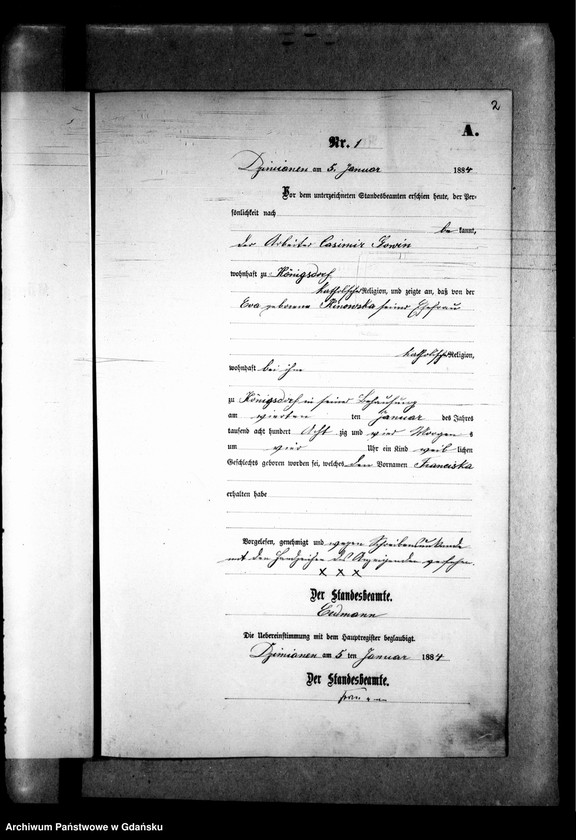 2
A.
Nr. 1
Dzimianen am 5. Januar 1884
Vor dem unterzeichneten Standesbeamten erschien heute, der Per-
sönlichkeit nach
be kannt,
der Arbeiter Casimir
wohnhaft zu Königsdorf
katholischer Religion, und zeigte an, daß von der
Eva geborene seiner Ehefrau
katholischer Religion,
wohnhaft bei ihm
zu Königsdorf in seiner Behausung
am vierten ten Januar des Jahres
tausend acht hundert Acht zig und vier Morgen s
um vier Uhr ein Kind weib lichen
Geschlechts geboren worden sei, welches den Vornamen Franciska
erhalten habe
Vorgelesen, genehmigt und wegen Schreibensunkunde
mit den Handzeichen des Anzeigenden versehen.
x x x
Der Standesbeamte.
Erdmann
Die Uebereinstimmung mit dem Hauptregister beglaubigt.
Dzimianen am 5 ten Januar 1884
Der Standesbeamte.
Archiwum Państwowe w Gdańsku